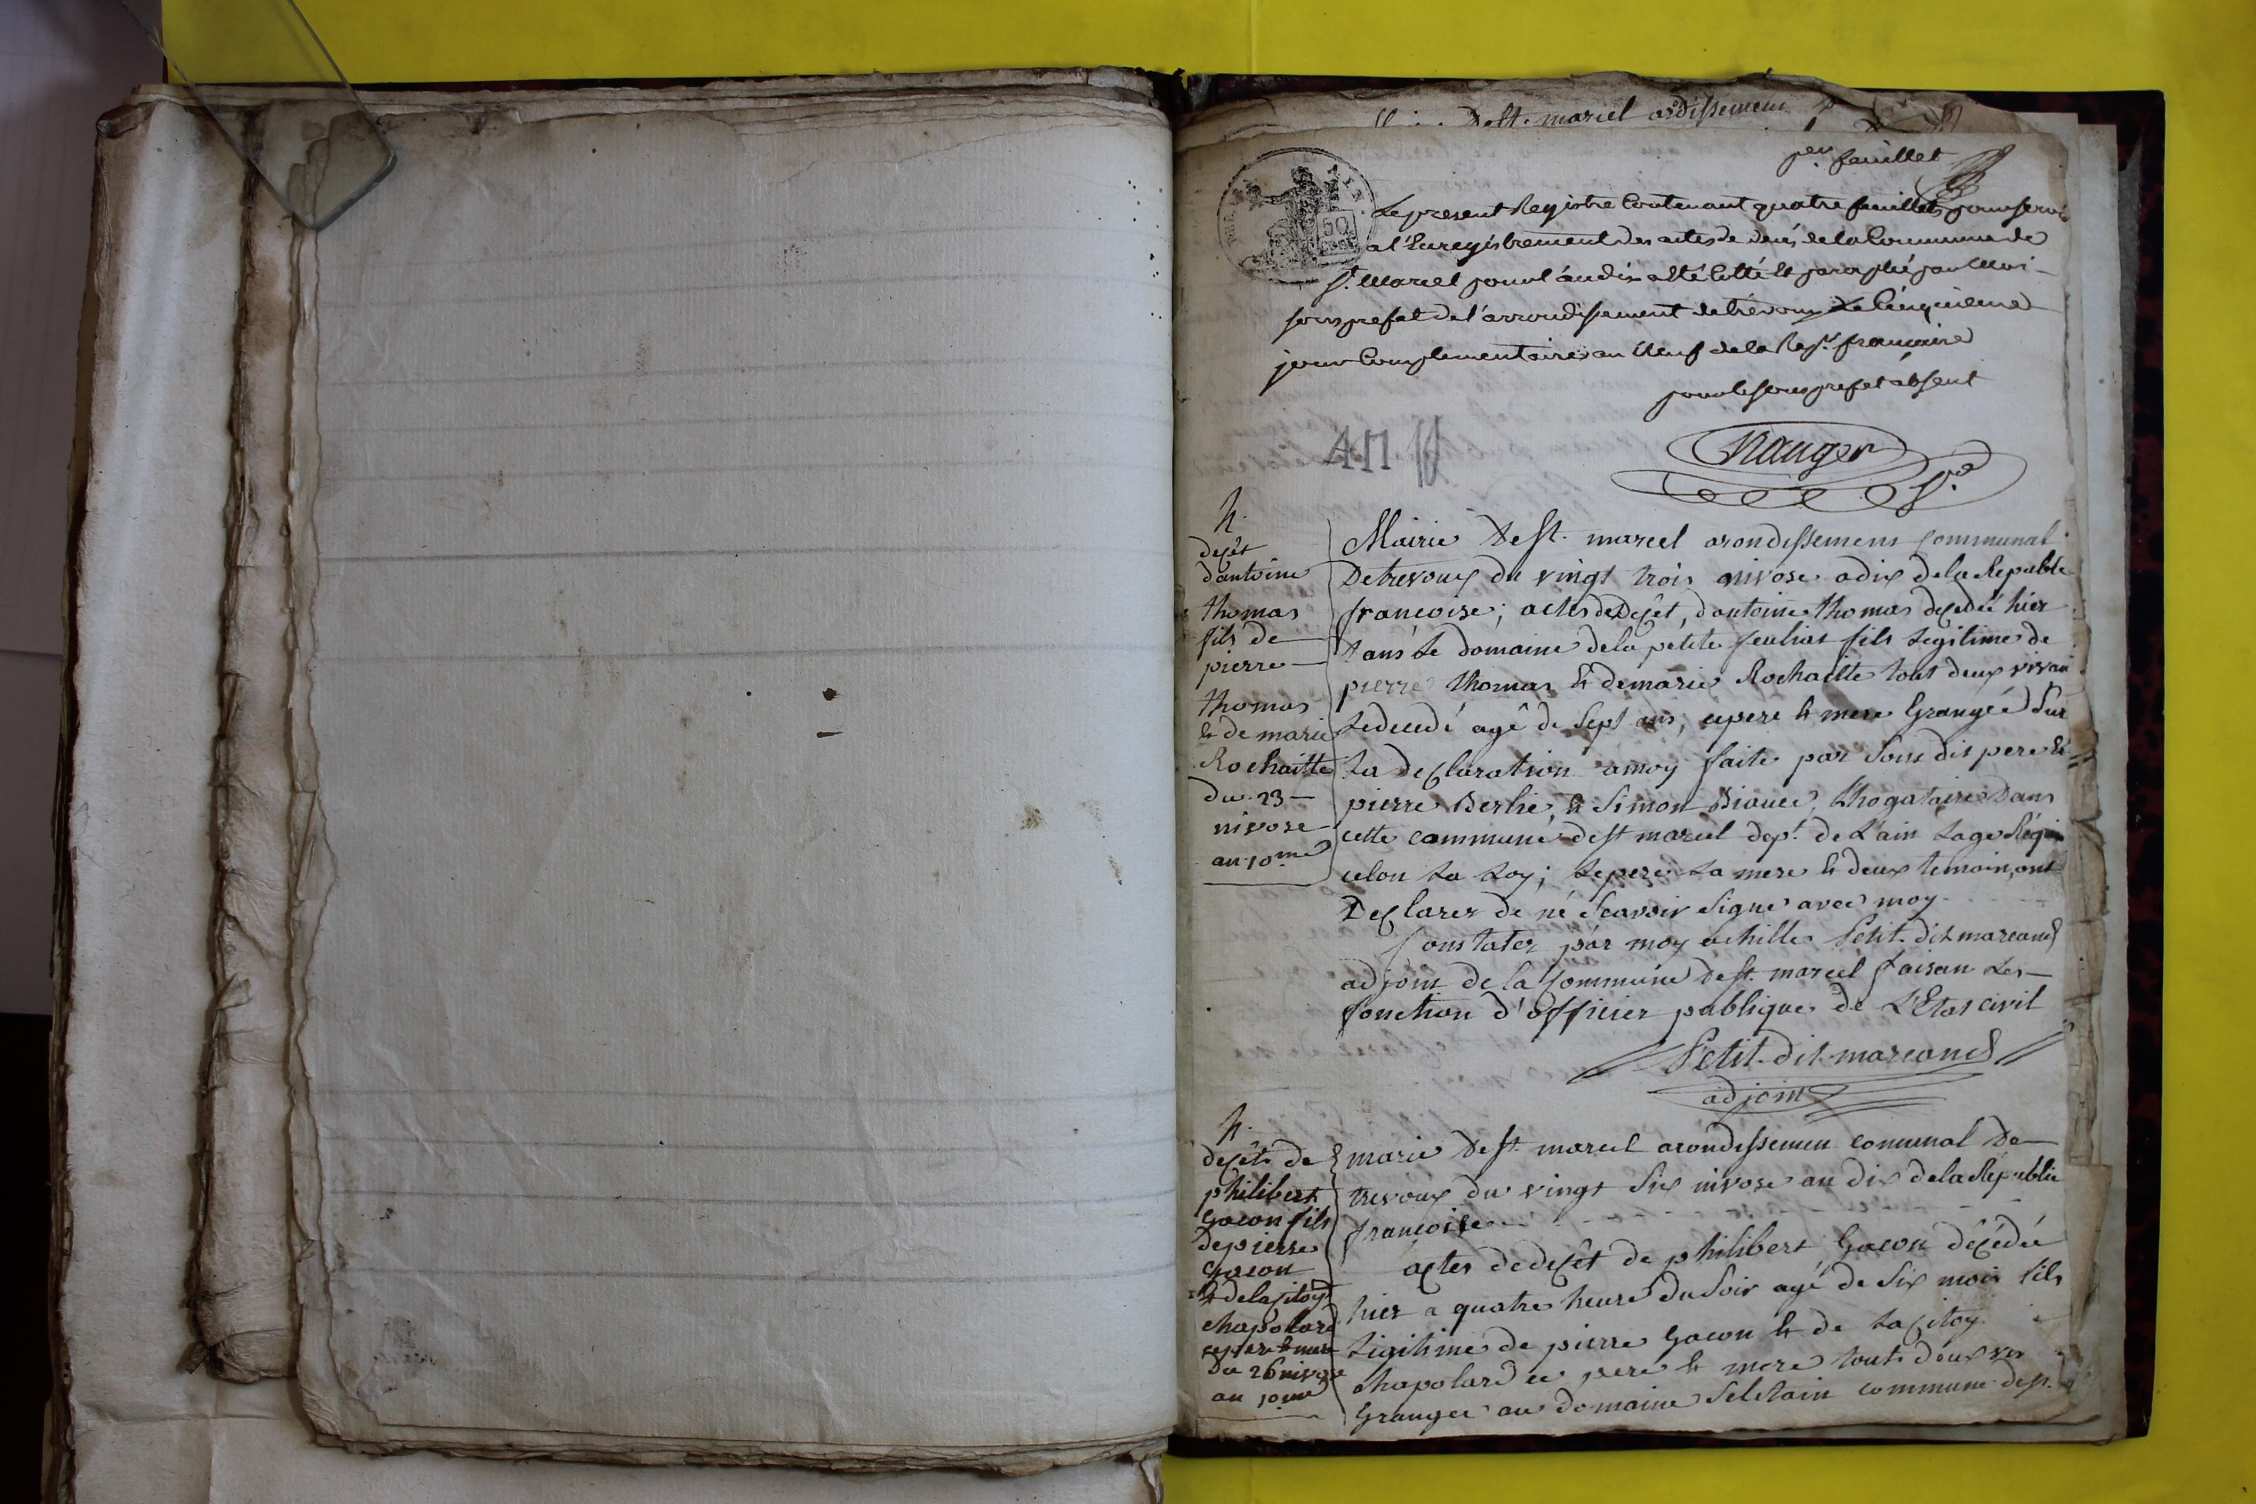 De st. marcel ordissement
per feuillet
50
Le present Registre Contenant quatre feuillets pour servir
a l'Enregistrement des actes de deces de la Commune de
St. Marcel pour l'an dix a été Cotté et paraphé par Moi
sous prefet de l'arrondissement de trevoux Le Cinquieme
jour Complementaire an Neuf de la Rep. française
pour le sous prefet absent
An 10
h.
deçêt
d'antoine
thomas
fils de
pierre
thomas
& de marie
Rochaitte
du 23
nivose
an 10me
Mairie De st. marcel arondissemens communal
De trevoux du vingt trois nivose a dix de la Republi
francoise; actes de Deçêt, d'antoine thomas deçedé hier
dans le domaine de la petite feulias fils legitime de
pierre thomas & de marie Rochaitte tous deux vivan
le decedé agé de sept ans, ce pere & mere Grangée Sur
la declaration a moy faite par Sons dit pere &
pierre Berlie, & Simon
cette commune de st marcel dept. de L'ain
celon La Loy; le pere La mere & deux temoin, ont
Declarer de né Scavoir Signe avec moy
Constater par moy achille Petit dit marcand
adjoint de la Commune de st. marcel faisan Les
fonction d'officier publique de L'Etat civil
Petit dit marcand
adjoint
h.
deçêt de
philibert
Gacon fils
De pierre
Gacon
& de la çitoy
chapolard
ce pere & mere
Du 26 nivose
an 10me
marie De st. marcel arondissemen comunal De
trevoux du vingt Six nivose an dix de la Republi
francoise
actes de deçêt de philibert Gacon déçédé
hier a quatre heure Du Soir agé de Six mois fils
Ligitime de pierre Gacon & de La çitoy
chapolard ce pere & mere tout deux
Granger au domaine commune de st.